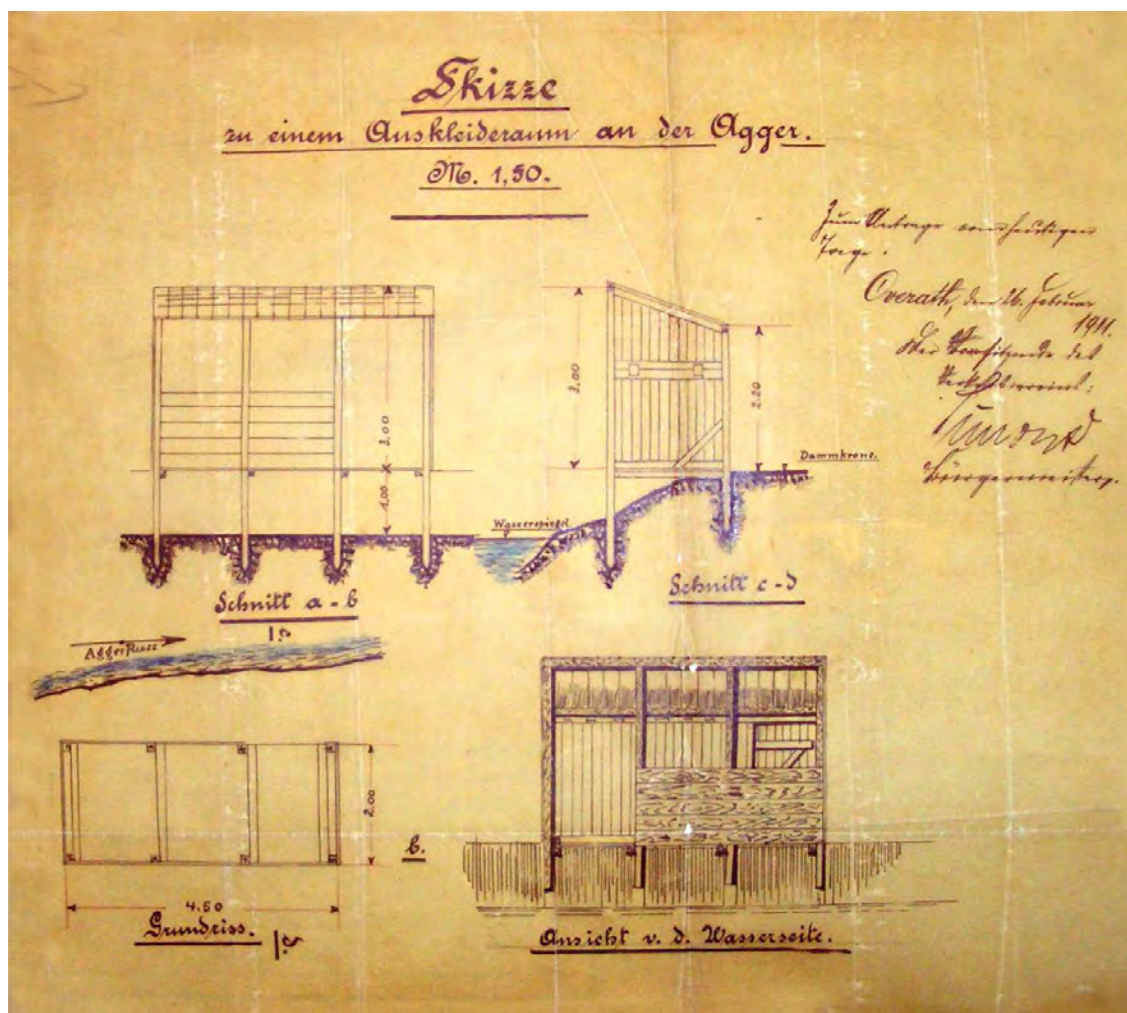 Skizze
zu einem Auskleideraum an der Agger.
M. 1,50.
Zum Antrage vom heutigen
Tage.
Overath, den 26. Februar
1911.
Der Vorsitzende des
Verkehrsvereins:
Bürgermeister.
3,00
1,00
3,00
2,20
Dammkrone.
Wasserspiegel
Schnitt a-b
Schnitt c-d
Aggerfluss
2,00
b.
4.50
Grundriss.
Ansicht v. d. Wasserseite.